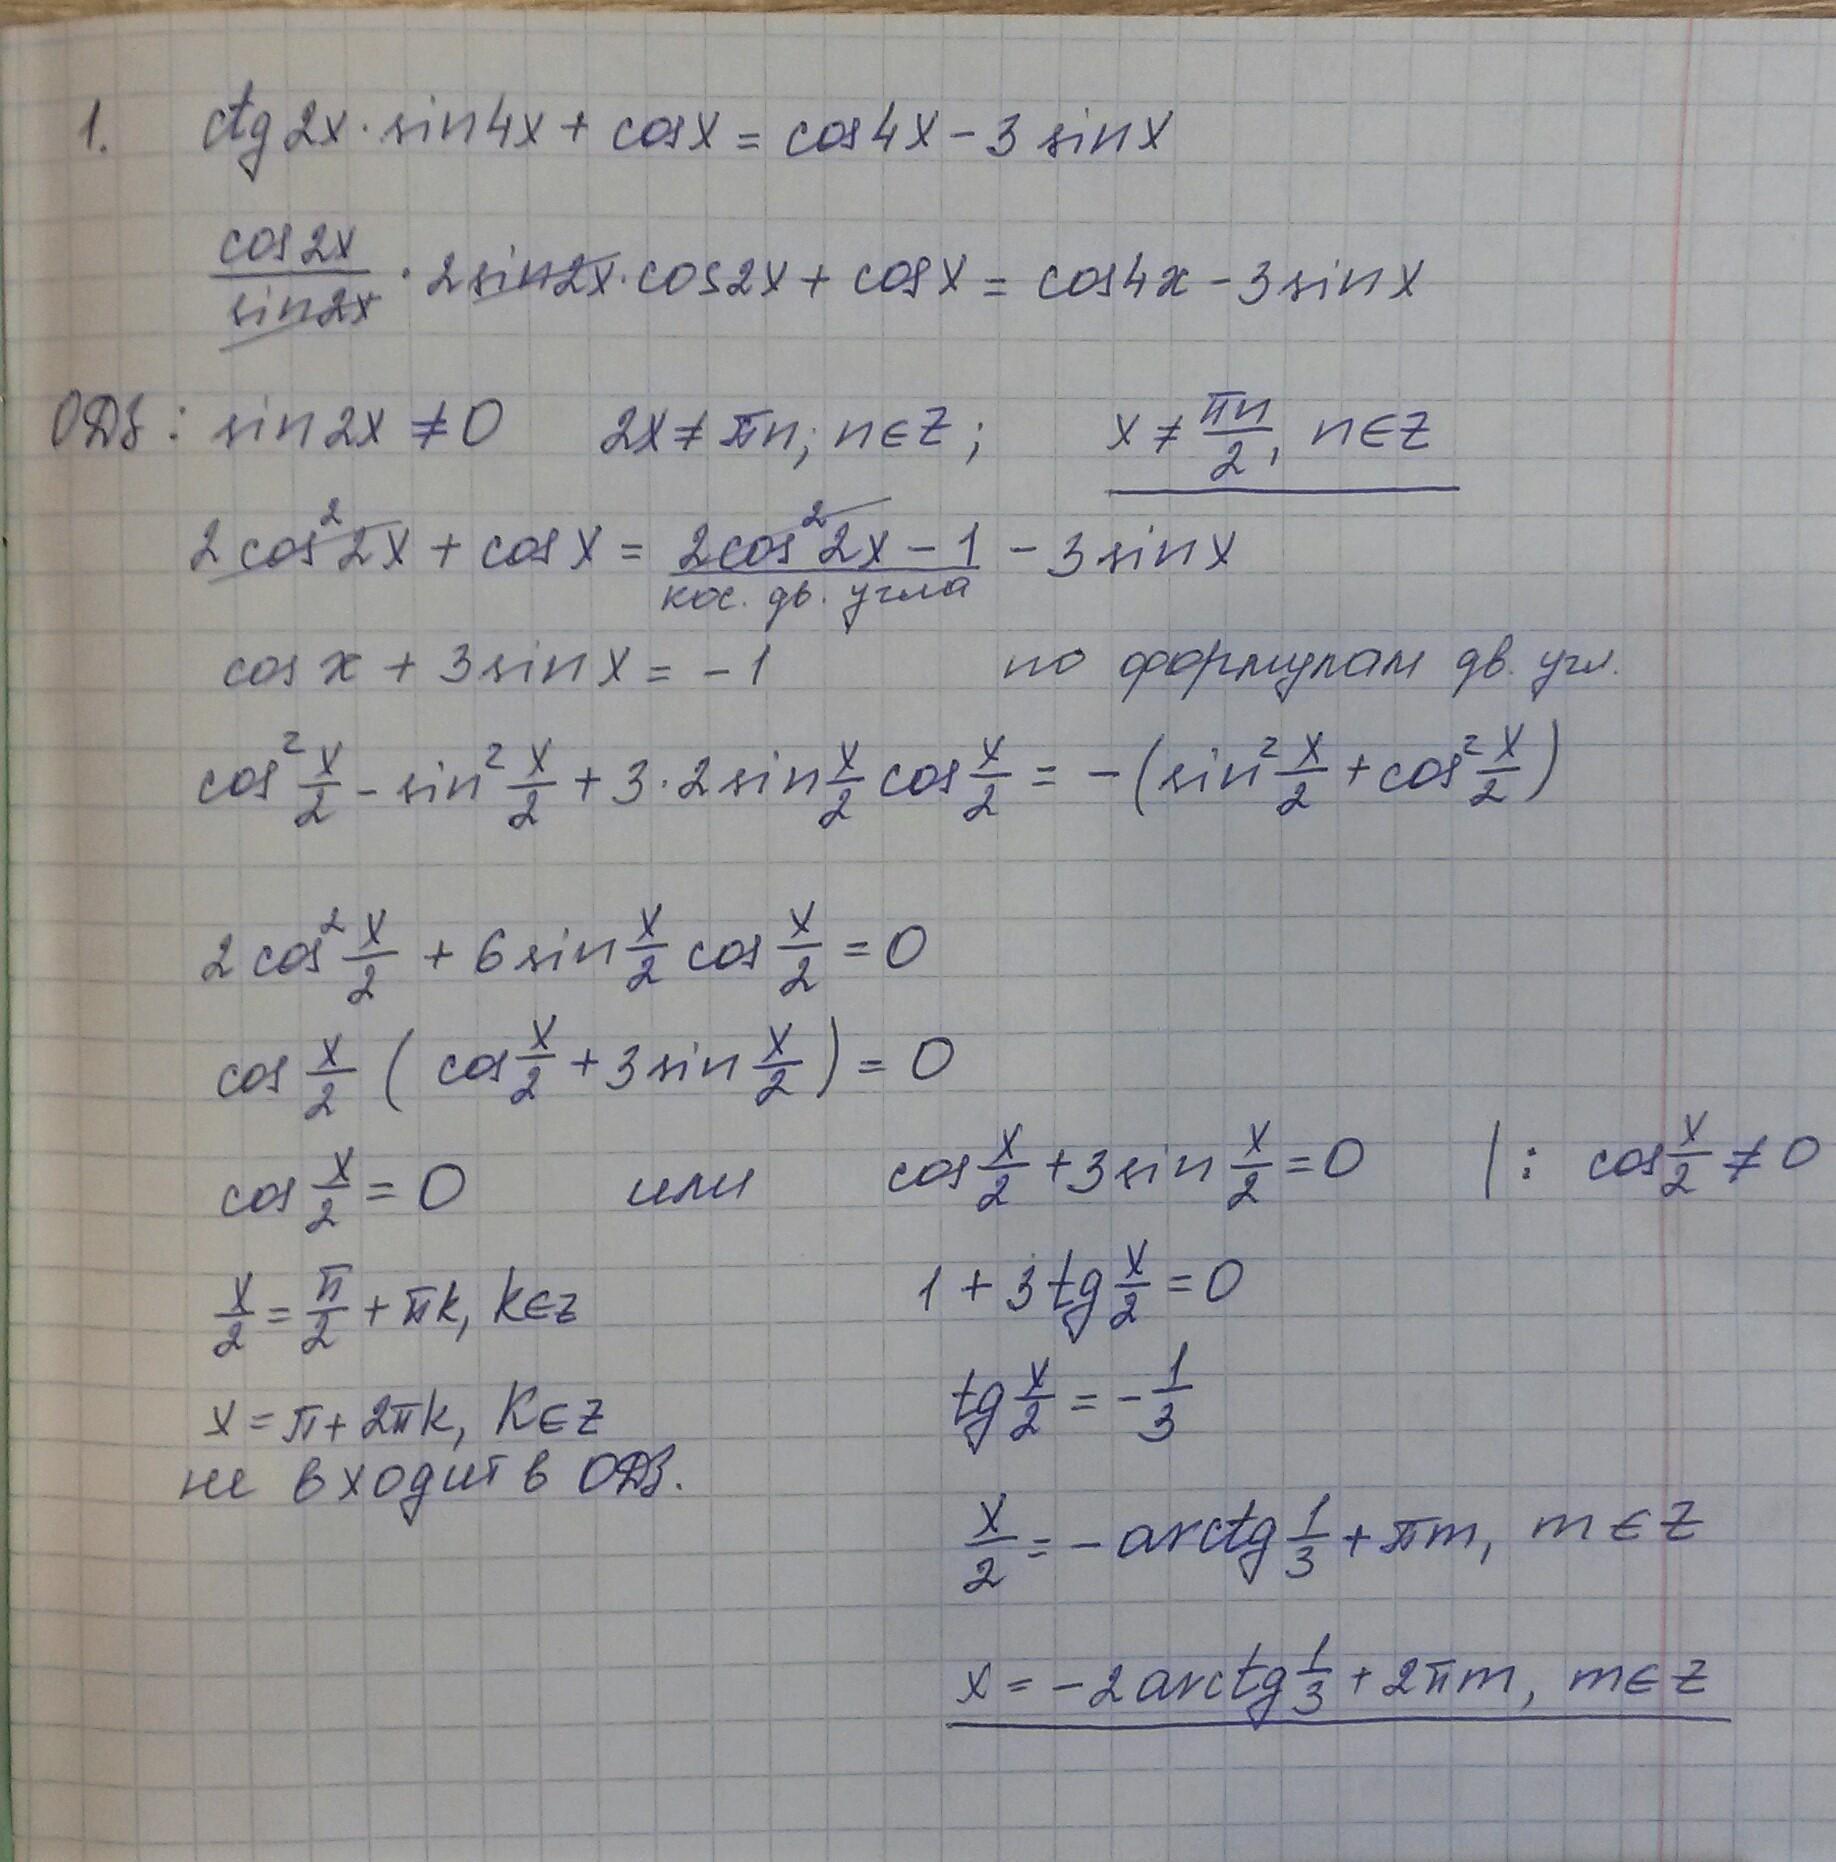 1. ctg2x · sin4x + cosx = cos4x - 3sinx
cos2x/sin2x · 2sin2x · cos2x + cosx = cos4x - 3sinx
ОДЗ: sin2x ≠ 0 2x ≠ πn; n∈Z; x ≠ πn/2, n∈Z
2cos²2x + cosx = 2cos²2x - 1 - 3sinx
кос. дв. угла
cosx + 3sinx = -1 по формулам дв. угл.
cos² x/2 - sin² x/2 + 3·2sin x/2 cos x/2 = -(sin² x/2 + cos² x/2)
2cos² x/2 + 6sin x/2 cos x/2 = 0
cos x/2 (cos x/2 + 3sin x/2) = 0
cos x/2 = 0 или cos x/2 + 3sin x/2 = 0 |: cos x/2 ≠ 0
x/2 = π/2 + πk, k∈Z 1 + 3tg x/2 = 0
x = π + 2πk, k∈Z tg x/2 = -1/3
не входит в ОДЗ.
x/2 = -arctg 1/3 + πm, m∈Z
x = -2arctg 1/3 + 2πm, m∈Z